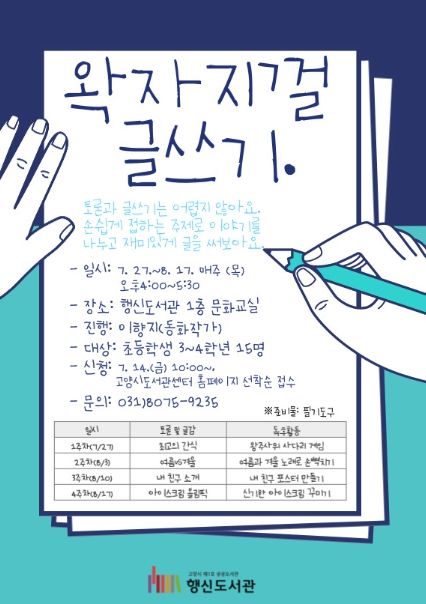 왁자지껄
글쓰기.
토론과 글쓰기는 어렵지 않아요.
손쉽게 접하는 주제로 이야기를
나누고 재미있게 글을 써보아요.
- 일시: 7. 27.~8. 17. 매주 (목)
오후4:00~5:30
- 장소: 행신도서관 1층 문화교실
- 진행: 이향지(동화작가)
- 대상: 초등학생 3~4학년 15명
- 신청: 7. 14.(금) 10:00~,
고양시도서관센터 홈페이지 선착순 접수
- 문의: 031)8075-9235
※준비물: 필기도구
일시 토론 및 글감 독후활동
1주차(7/27) 최고의 간식 왕주사위 사다리 게임
2주차(8/3) 여름vs겨울 여름과 겨울 노래로 손뼉치기
3주차(8/10) 내 친구 소개 내 친구 포스터 만들기
4주차(8/17) 아이스크림 올림픽 신기한 아이스크림 꾸미기
행신도서관